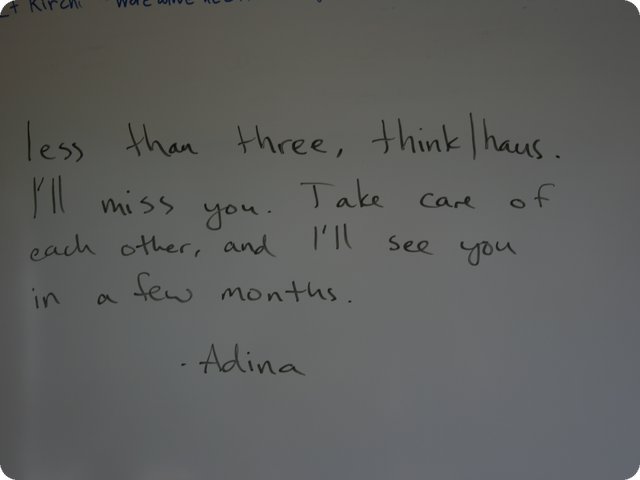 less than three, think|haus.
I'll miss you. Take care of
each other, and I'll see you
in a few months.
- Adina